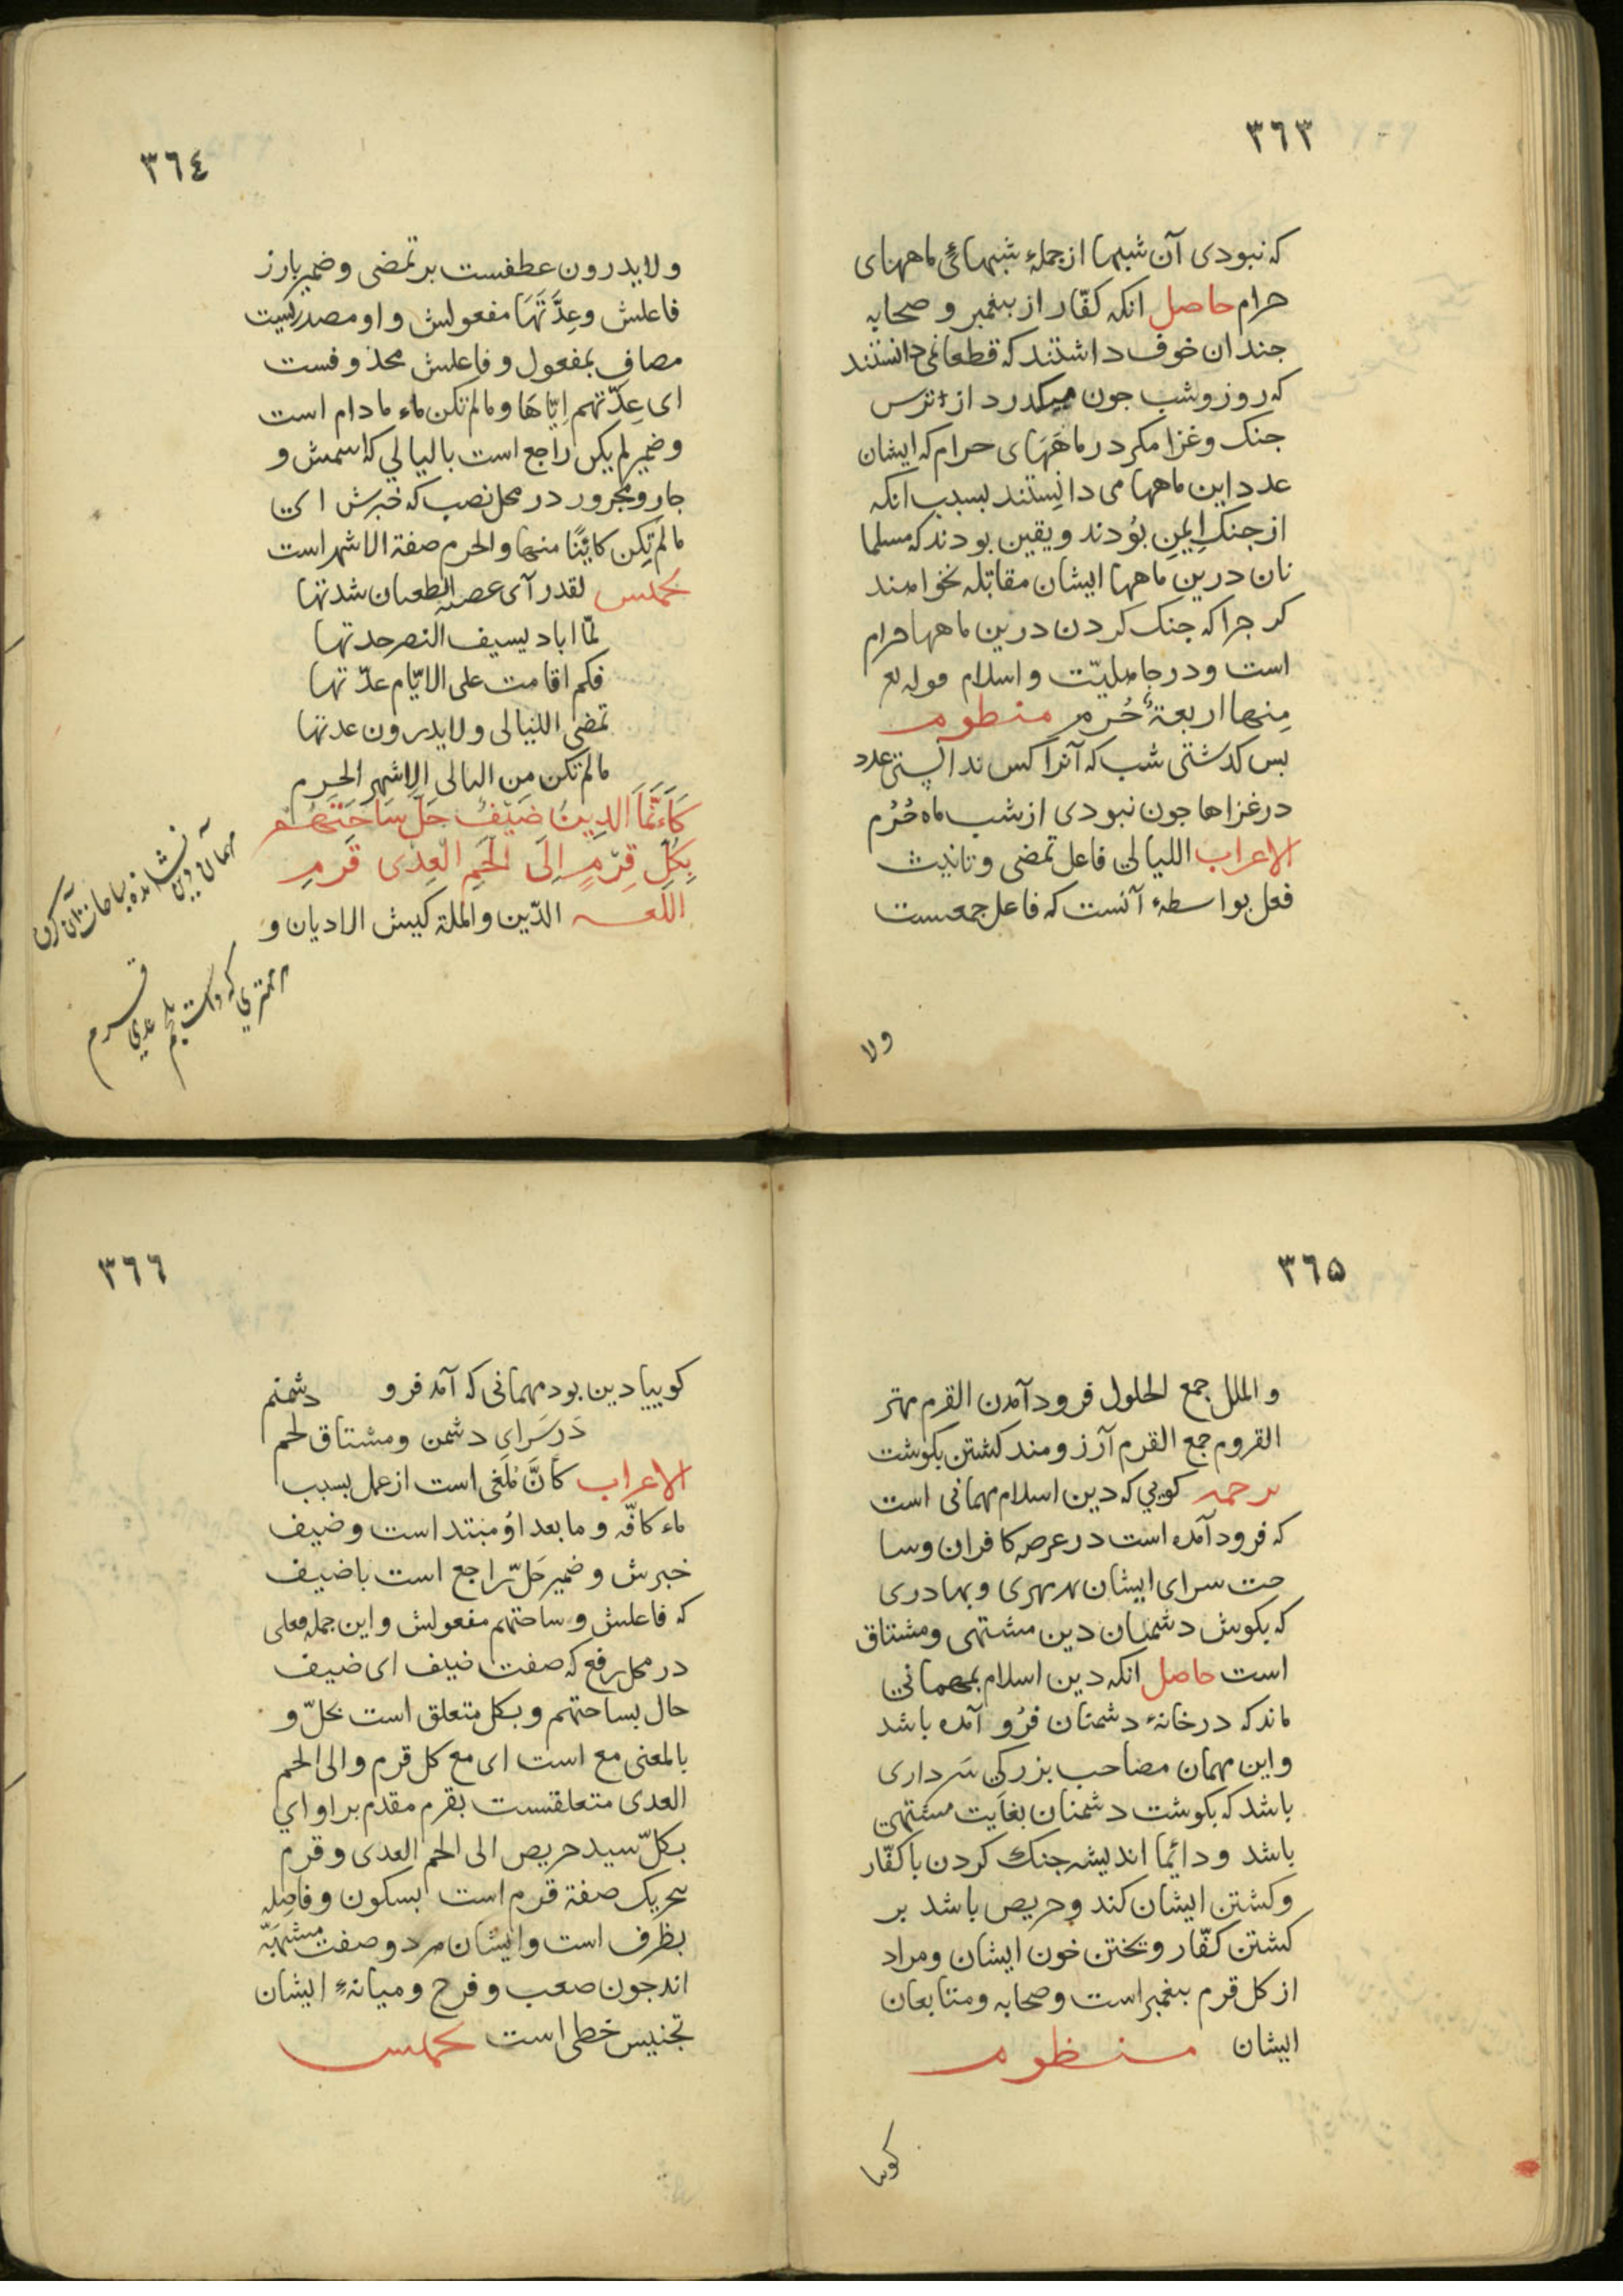 ٣٦٣
که نبودی آن شبها از جملهٔ شبهائی ماههای
حرام حاصل انکه کفّار از بیغمبر و صحابه
جندان خوف داشتند که قطعا نمی دانستند
که روز و شب جون میکدرد از ترس
جنک و غزا مکر در ماهَهَای حرام که ایشان
عدد این ماهها می دانِستند بسبب انکه
از جنک اِیمِن بوُدند و یقین بودند که مسلما
نان درین ماهها ایشان مقاتله نخواهند
کر جرا که جنک کردن درین ماهها حرام
است و در جاهلیّت و اسلام قوله تع
مِنها اربعةٌ حُرم منظوم
بس کدشتی شب که آنرا کس نداٰنستی عدد
در غزاها جون نبودی از شب ماه حُرُم
الاعراب الليالي فاعل تمضی و تانیث
فعل بواسطهٔ آنست که فاعل جمعست
ولا
٣٦٤
و لا یدرون عطفست بر تمضی و ضمیر بارز
فاعلش وعِدَّتَهَا مفعولش و او مصدریست
مصاف بمفعول و فاعلش محذوفست
ای عِدّتهم اِیّاهَا و مالم تکن ماء مادام است
و ضمیر لم یکن راجع است با لیالي که اسمش و
جار و مجرور در محل نصب که خبرش ای
مالم تکِن کائِنًا منها و الحرم صفة الاشهر است
تخمیس لقدر آی عصبة الطعیان شدتها
لمّا اباد بسیف النصر حدتها
فکم اقامت علی الایّام عدّتها
تمضی اللیالی و لا یدرون عدتها
مالم تکن مِن لیالی الاشهر الحرم
كَاَنَّمَا الدِینُ ضَیْفُ حَلَّ سَاحَتَهُم
بِکُلِّ قِرْمٍ اِلَی لَحَمِ الْعِدْی قَرِمِ
اللغه الدّین و الملة کیش الادیان و
مهمان دین نشانده بساحات آن کران
هر مهتری که داشت بلحم عدی قرم
٣٦٥
و الملل جمع لحلول فرود آمدن القرم مهتر
القروم جمع القرم آرزومند کشتن بکوشت
ترحمه کویي که دین اسلام مهمانی است
که فرود آمده است در عرصه کافران و سا
حت سرای ایشان بهر مهتری و بهادری
که بکوشت دشمنان دین مشتهی و مشتاق
است حاصل انکه دین اسلام بمهماني
ماند که در خانهٔ دشمنان فرُو آمده باشد
و این مهمان مصاحب بزرکي سَرداری
باشد که بکوشت دشمنان بغایت مشتهی
باشد و دائِما اندیشه جنک کردن با کفّار
و کشتن ایشان کند و حریص باشد بر
کشتن کفّار و ریختن خون ایشان و مراد
از کل قرم بیغمبر است و صحابه و متابعان
ایشان منظوم
کوییا
٣٦٦
کوییا دین بود مهمانی که آمد فرو دشمنم
دَر سَرای دشمن و مشتاق لحم
الاعراب کأنَّ مُلغی است از عمل بسبب
ماء کافّه و ما بعد اوُ مبتدا است و ضیف
خبرش و ضمیر حَلّ راجع است با ضیف
که فاعلش و ساحتهم مفعولش و این جمله فعلی
در محل رفع که صفت ضیف ای ضیف
حال بساحتهم و بکل متعلق است بحلّ و
با لمعنی مع است ای مع کل قرم و الی لحم
العدی متعلقست بقرم مقدم بر او اي
بکلّ سید حریص الی لحم العدی و قرم
بتحریک صفة قرم است بسکون و فاصله
بظرف است و ایشان هر دو صفت مشبهّه
اند جون صعب و فرح و میانهٔ ایشان
تجنیس خطی است تخمیس